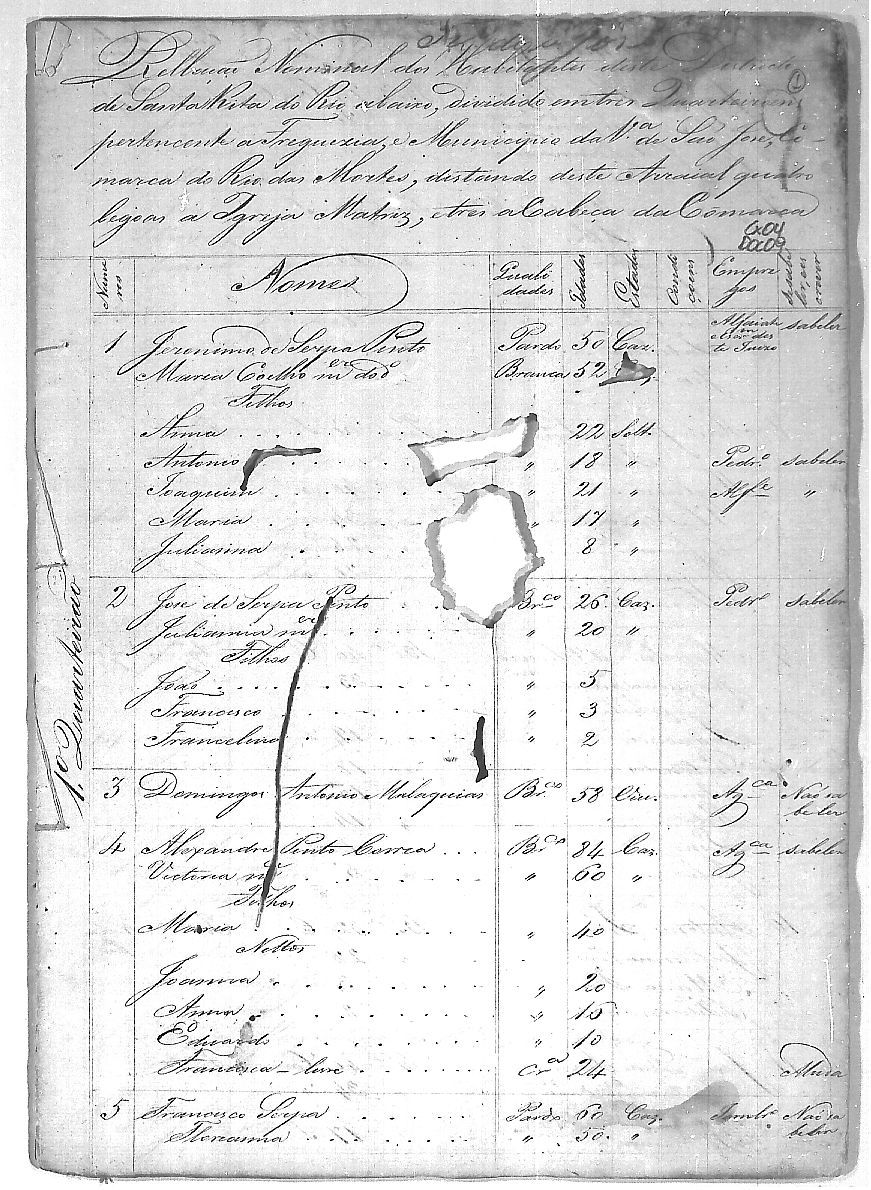 Rellação Nominal dos Habitantes deste Districto
de Santa Rita do Rio abaixo, dividido em tres Quarteirões
pertencente a Freguezia, e Municipio da V.ª de São Jose, Co-
marca do Rio das Mortes, distando deste Arraial quatro
legoas a Igreja Matriz, e tres a Cabeça da Comarca
1
Cx04
Doc09
Nume ros Nomes Quali dades Idades Estados Condi çoens Empre gos Se sabe ler, ou escrever
1.º Quarteirão
1 Jeronimo de Serpa Pinto Pardo 50 Caz. Alfaiate sabe ler
Maria Coelho m.er do d.º Branca 52
Filhos
Anna 22 Solt.
Antonio " 18 " Pedr.º sabe ler
Joaquim " 21 " Alf.e "
Maria " 17 "
Julianna 8 "
2 Jose de Serpa Pinto Br.co 26 Caz. Pedr.º sabe ler
Julianna m.er " 20 "
Filhos
João " 5
Francisco " 3
Francelina " 2
3 Domingos Antonio Malaquias Br.co 58 Viu. Ag.ca Não sa
be ler
4 Alexandre Pinto Correa Br.co 84 Caz. Ag.ca sabe ler
Victoria m.er " 60 "
Filhos
Maria " 40
Nettos
Joanna " 20
Anna " 15
Eduardo " 10
Francisca - livre Cr.ª 24 Muda
5 Francisco Serpa Pardo 60 Caz. Não sa
Floreanna " 50 " be ler